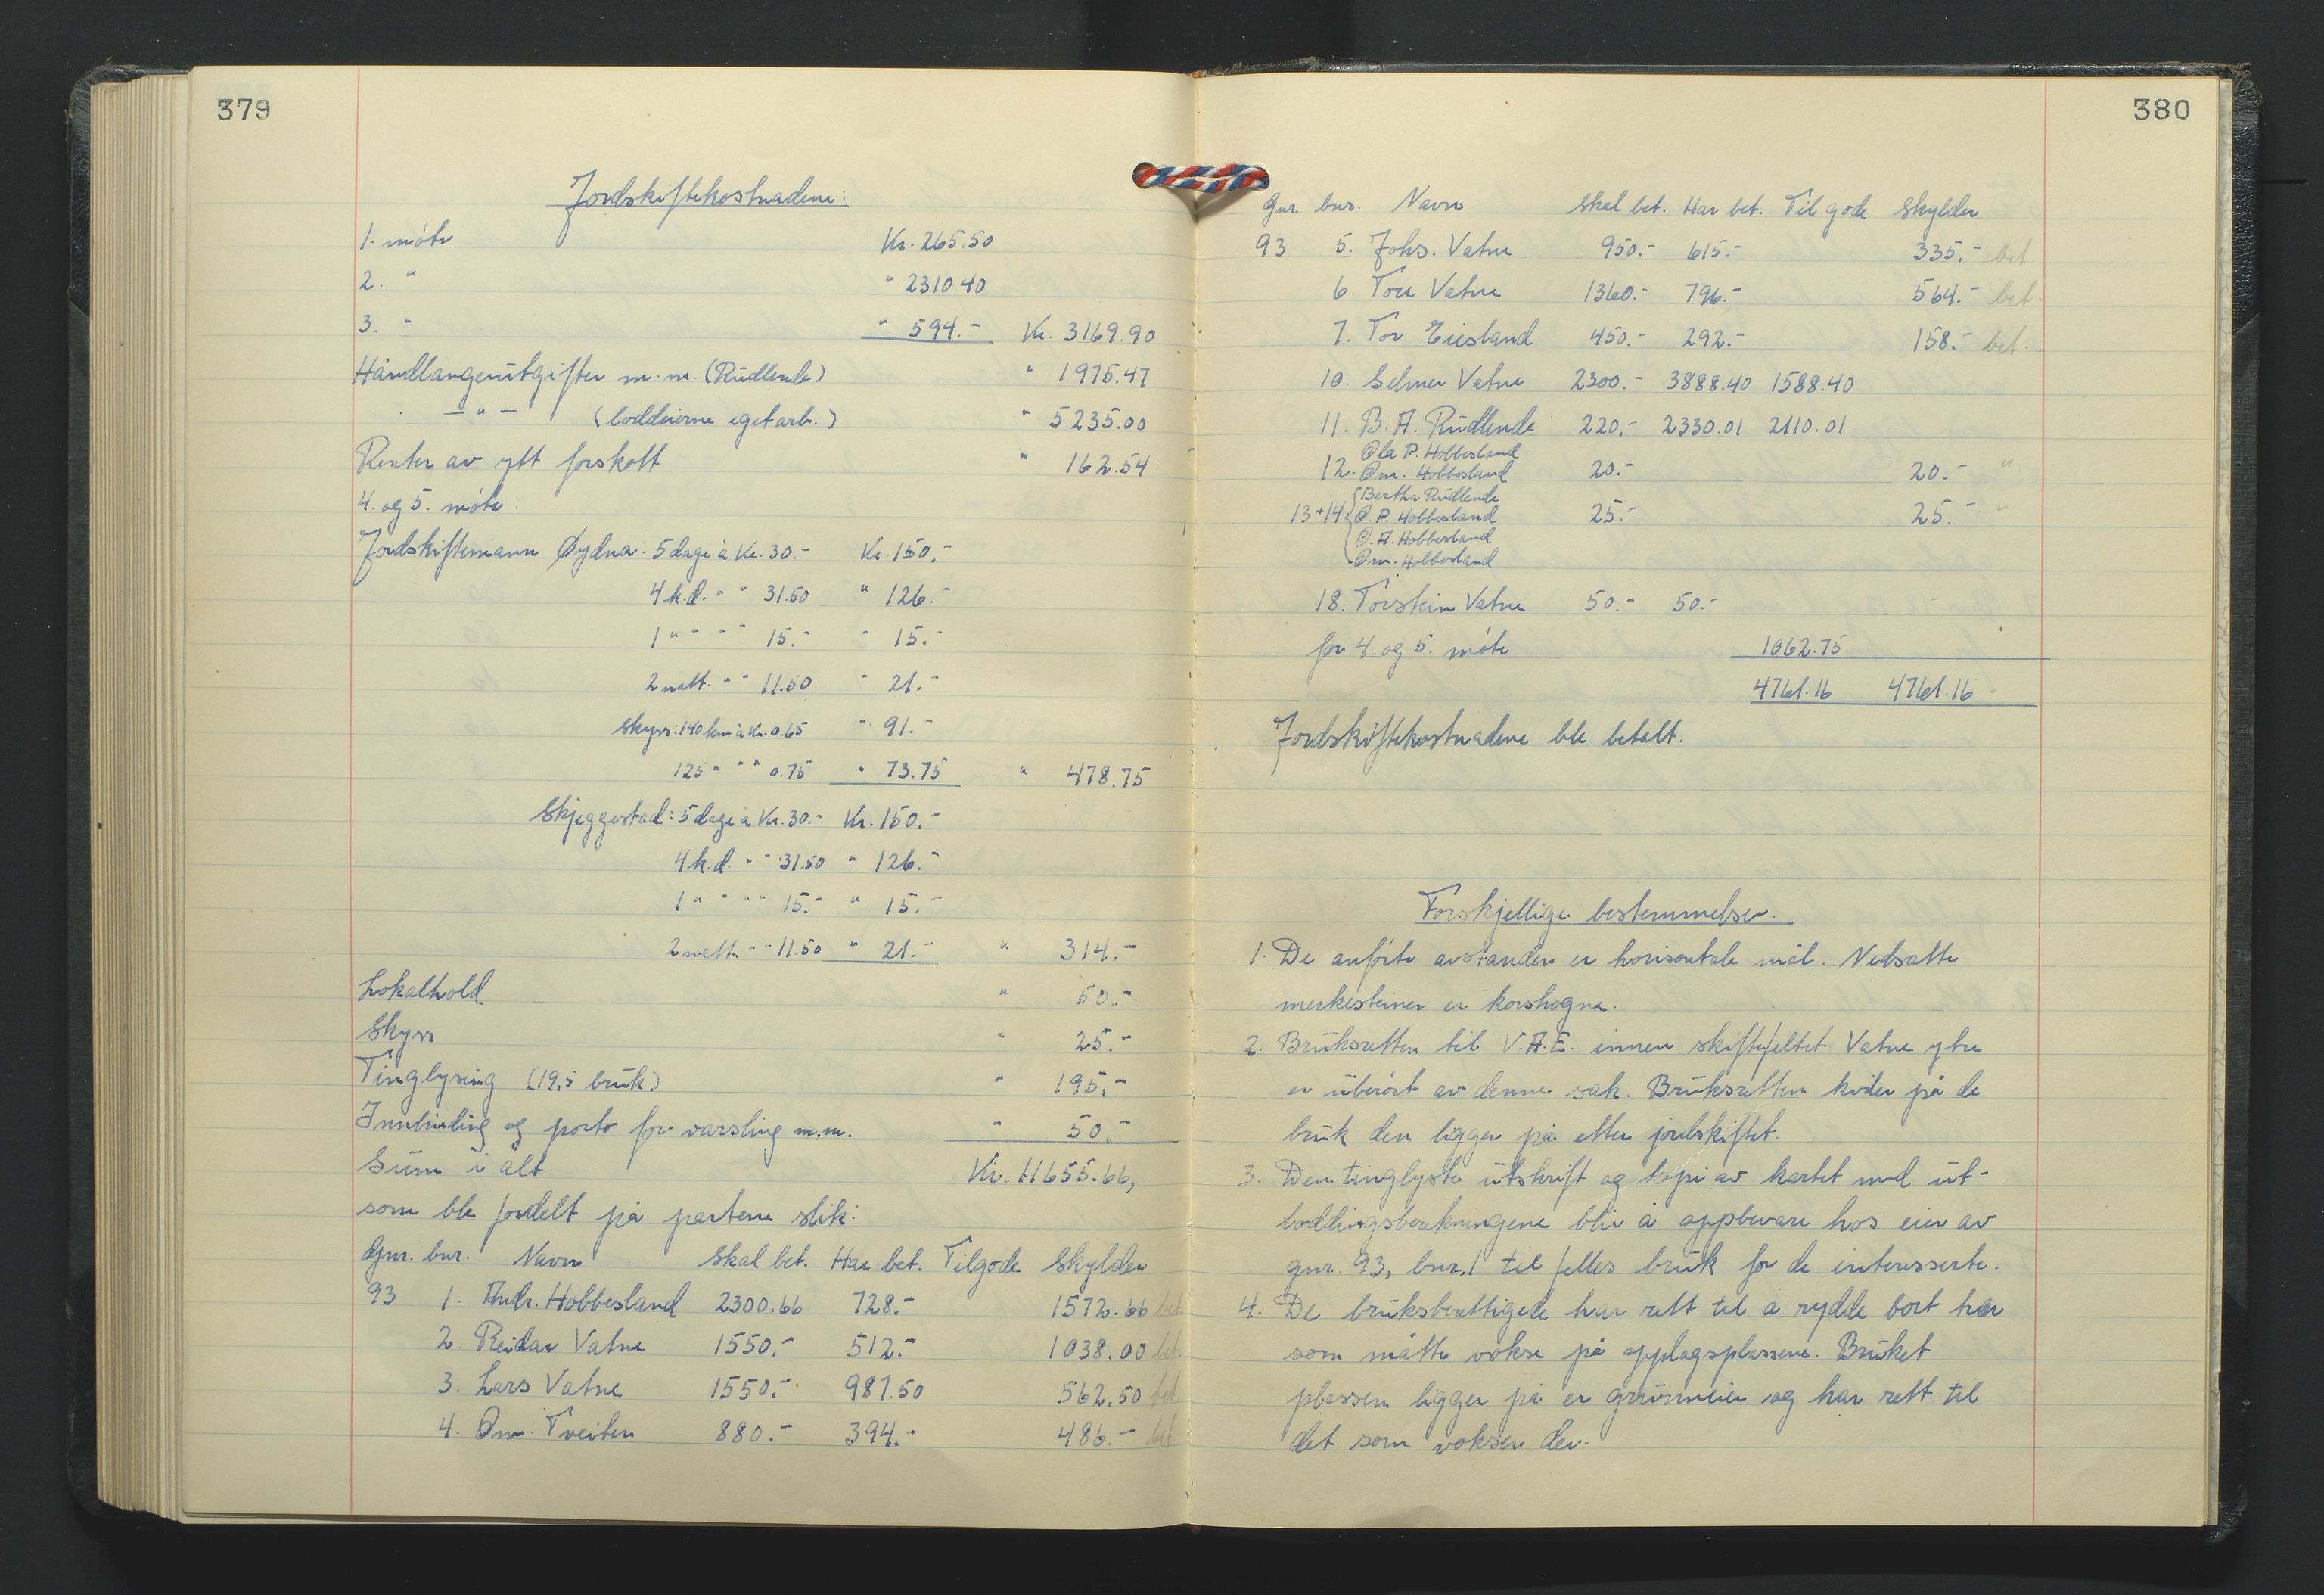 379
Jordskiftekostnadene:
1. møte Kr. 265.50
2. " " 2310.40
3. " " 594.- Kr. 3169.90
Håndlangerutgifter m.m. (Rudlende) " 1975.47
- " - (loddeierne eget arb.) " 5235.00
Renter av ytt forskott " 162.54
4. og 5. møte:
Jordskiftemann Øydna: 5 dage à Kr. 30.- Kr. 150.-
4 k.d. " " 31.50 " 126.-
1 " " " " 15.- " 15.-
2 natt. " " 11.50 " 21.-
Skyss: 140 km à Kr. 0.65 " 91.-
125 " " " 0.75 " 73.75 " 478.75
Skjeggestad: 5 dage à Kr. 30.- Kr. 150.-
4 k.d. " " 31.50 " 126.-
1 " " " " 15.- " 15.-
2 natt. " " 11.50 " 21.- " 314.-
Lokalhold " 50.-
Skyss " 25.-
Tinglysing (19,5 bruk) " 195.-
Innbinding og porto for varsling m.m. " 50.-
Sum i alt Kr. 11655.66,
som ble fordelt på partene slik:
Gnr. bnr. Navn Skal bet. Har bet. Tilgode Skylder
93 1. Andr. Hobbesland 2300.66 728.- 1572.66 bet.
2. Reidar Vatne 1550.- 512.- 1038.00 bet.
3. Lars Vatne 1550.- 987.50 562.50 bet
4. Om. Tveiten 880.- 394.- 486.- bet
380
Gnr. bnr. Navn Skal bet. Har bet. Til gode Skylder
93 5. Johs. Vatne 950.- 615.- 335.- bet.
6. Tore Vatne 1360.- 796.- 564.- bet.
7. Tor Eiesland 450.- 292.- 158.- bet.
10. Selmer Vatne 2300.- 3888.40 1588.40
11. B. A. Rudlende 220.- 2330.01 2110.01
Ola P. Hobbesland
12. Om. Hobbesland 20.- 20.- "
Bertha Rudlende
13+14 O. P. Hobbesland 25.- 25.- "
O. A. Hobbesland
Om. Hobbesland
18. Torstein Vatne 50.- 50.-
for 4. og 5. møte 1062.75
4761.16 4761.16
Jordskiftekostnadene ble betalt.
Forskjellige bestemmelser.
1. De anførte avstander er horisontale mål. Nedsatte
merkesteiner er korshogne.
2. Bruksretten til V.A.E. innen skiftefeltet Vatne ytre
er uberørt av denne sak. Bruksretten kviler på de
bruk den ligger på etter jordskiftet.
3. Den tinglyste utskrift og kopi av kartet med ut-
loddingsberekningene blir å oppbevare hos eier av
gnr. 93, bnr. 1 til felles bruk for de interesserte.
4. De bruksberettigede har rett til å rydde bort hva
som måtte vokse på opplagsplassene. Bruket
plassen ligger på er grunneier og har rett til
det som vokser der.